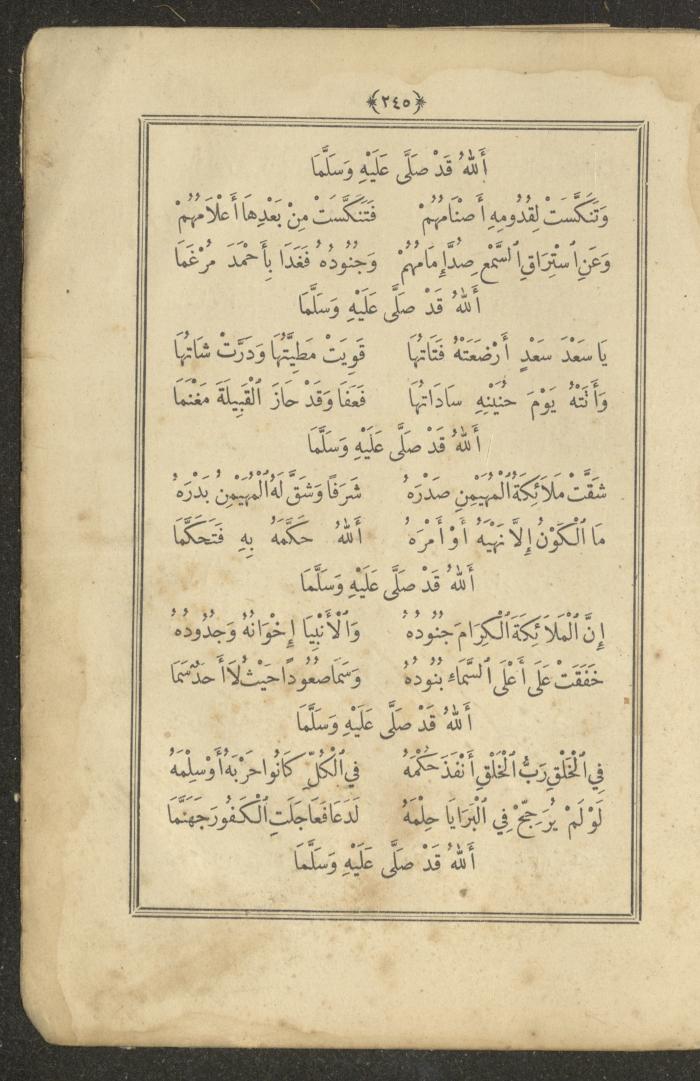 ﴿٢٤٥﴾
أَللهُ قَدْ صَلَّى عَلَيْهِ وَسَلَّمَا
وَتَنَكَّسَتْ لِقُدُومِهِ أَصْنَامُهُمْ فَتَنَكَّسَتْ مِنْ بَعْدِهَا أَعْلَامُهُمْ
وَعَنِ ٱسْتِرَاقِ ٱلسَّمْعِ صُدَّ إِمَامُهُمْ وَجُنُودُهُ فَغَدَا بِأَحْمَدَ مُرْغَمَا
أَللهُ قَدْ صَلَّى عَلَيْهِ وَسَلَّمَا
يَا سَعْدَ سَعْدٍ أَرْضَعَتْهُ فَتَاتُهَا قَوِيَتْ مَطِيَّتُهَا وَدَرَّتْ شَاتُهَا
وَأَتَتْهُ يَوْمَ حُنَيْنِهِ سَادَاتُهَا فَعَفَا وَقَدْ حَازَ ٱلْقَبِيلَةَ مَغْنَمَا
أَللهُ قَدْ صَلَّى عَلَيْهِ وَسَلَّمَا
شَقَّتْ مَلَائِكَةُ ٱلْمُهَيْمِنِ صَدْرَهُ شَرَفًا وَشَقَّ لَهُ ٱلْمُهَيْمِنُ بَدْرَهُ
مَا ٱلْكَوْنُ إِلَّا نَهْيَهُ أَوْ أَمْرَهُ أَللهُ حَكَّمَهُ بِهِ فَتَحَكَّمَا
أَللهُ قَدْ صَلَّى عَلَيْهِ وَسَلَّمَا
إِنَّ ٱلْمَلَائِكَةَ ٱلْكِرَامَ جُنُودُهُ وَٱلْأَنْبِيَا إِخْوَانُهُ وَجُدُودُهُ
خَفَقَتْ عَلَى أَعْلَى ٱلسَّمَاءِ بُنُودُهُ وَسَمَا صُعُودًا حَيْثُ لَا أَحَدٌ سَمَا
أَللهُ قَدْ صَلَّى عَلَيْهِ وَسَلَّمَا
فِي ٱلْخَلْقِ رَبُّ ٱلْخَلْقِ أَنْفَذَ حُكْمَهُ فِي ٱلْكُلِّ كَانُوا حَرْبَهُ أَوْ سِلْمَهُ
لَوْ لَمْ يُرَجِّحْ فِي ٱلْبَرَايَا حِلْمَهُ لَدَعَا فَعَاجَلَتِ ٱلْكَفُورَ جَهَنَّمَا
أَللهُ قَدْ صَلَّى عَلَيْهِ وَسَلَّمَا